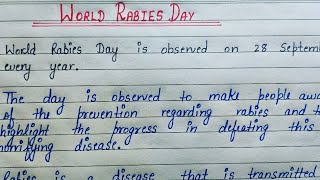 WORLD RABIES DAY
World Rabies Day is observed on 28 Septem
every year.
The day is observed to make people awa
of the prevention regarding rabies and t
highlight the progress in defeating this
horrifying disease.
Rabies is a disease that is transmitted